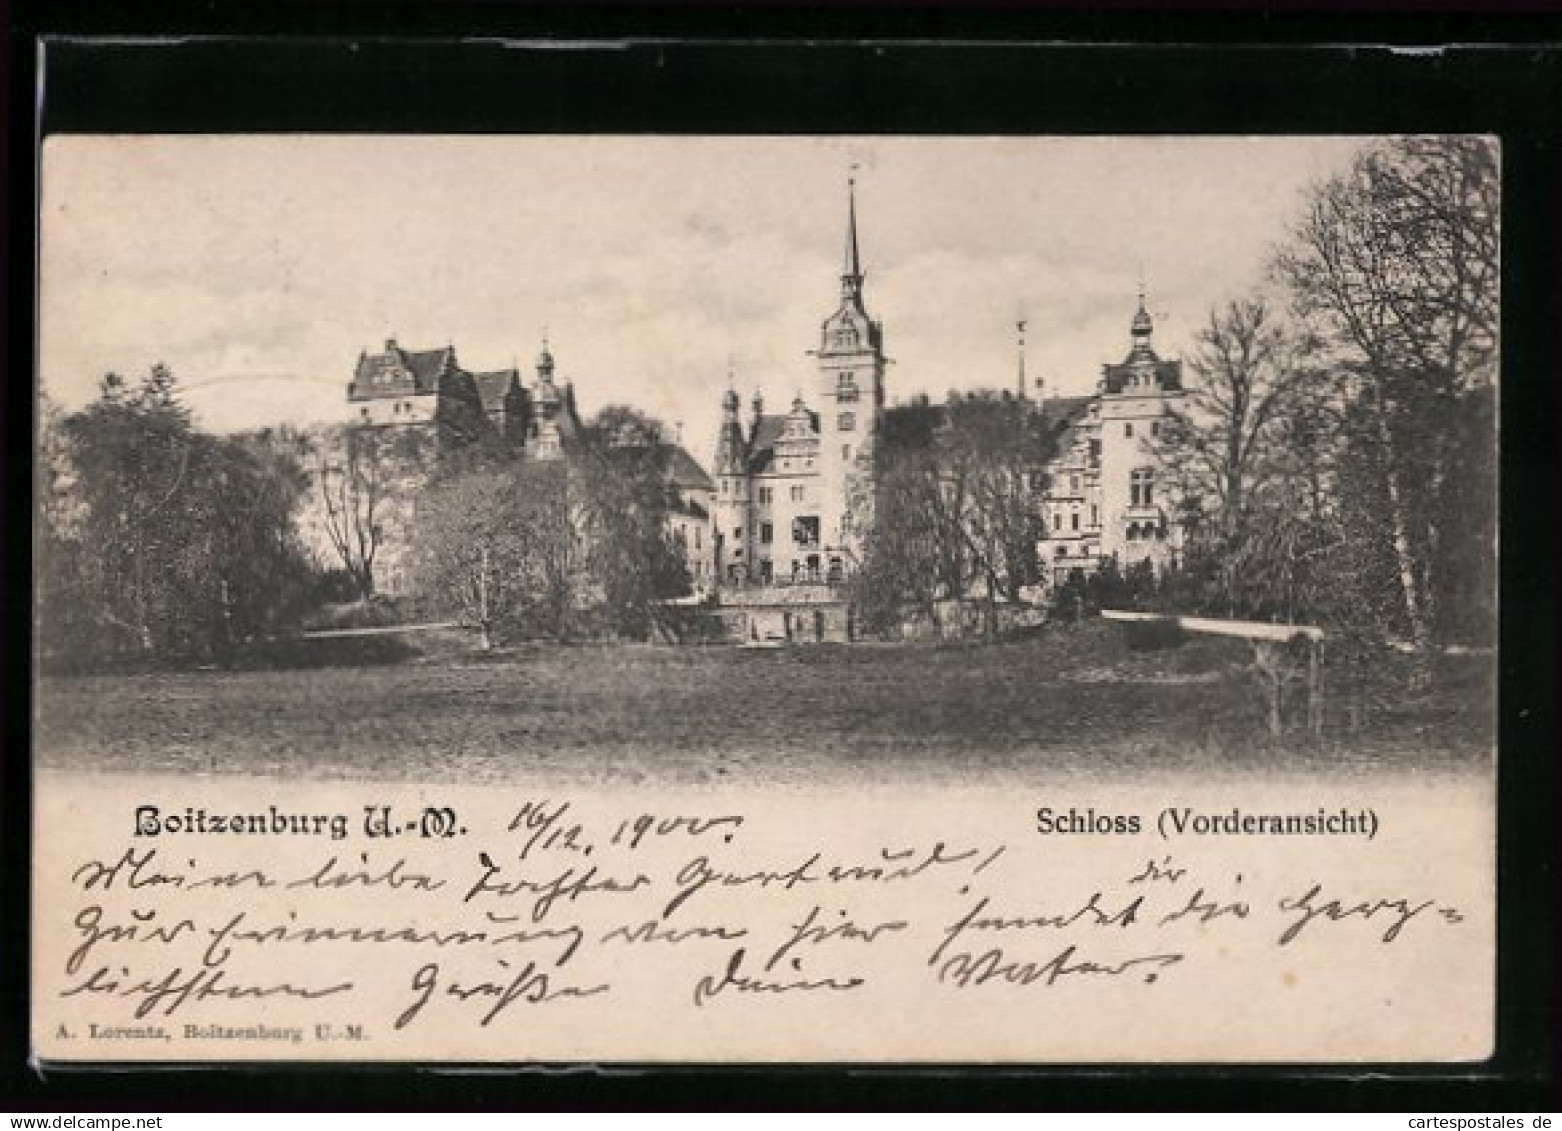 Boitzenburg U.-M. 16/12. 1900.
Schloss (Vorderansicht)
Meine liebe Tochter Gertrud!
dir
Zur Erinnerung von hier sendet die herz=
lichsten Grüße Dein Vater.
A. Lorentz, Boitzenburg U.-M.
delcampe.net
cartespostales de